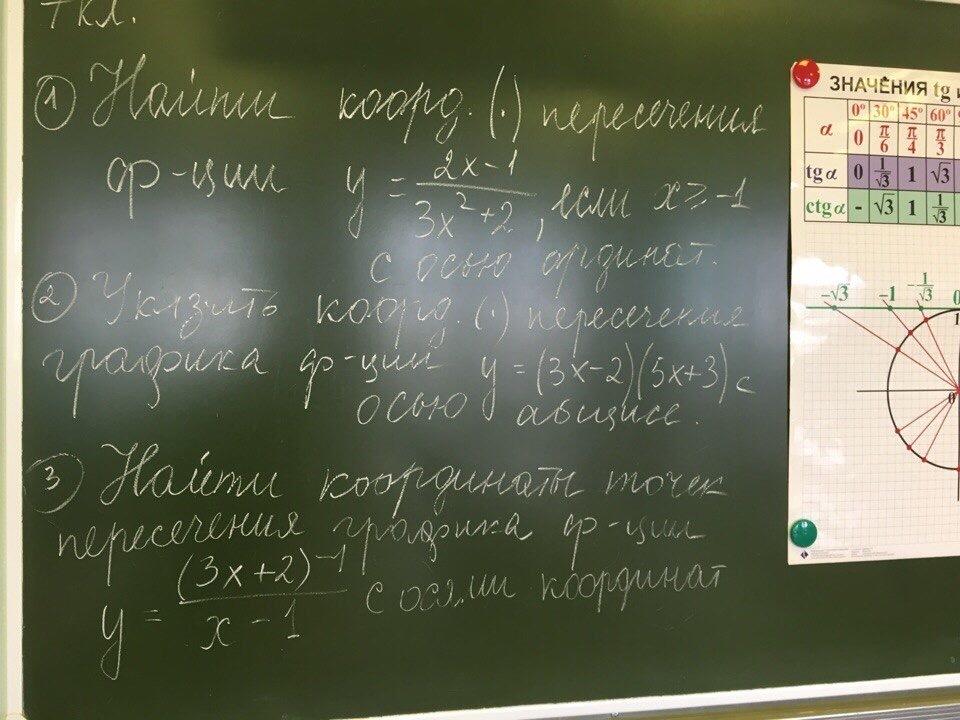 7 кл.
① Найти коорд. (·) пересечения
ф-ции y = (2x-1)/(3x²+2), если x ≥ -1
с осью ординат.
② Указать коорд. (·) пересечения
графика ф-ции y = (3x-2)(5x+3) с
осью абцисс.
③ Найти координаты точек
пересечения графика ф-ции
y = (3x+2)⁻¹/(x-1) с осями координат
ЗНАЧЕ́НИЯ tg и
α 0° 30° 45° 60°
0 π/6 π/4 π/3
tgα 0 1/√3 1 √3
ctgα - √3 1 1/√3
-√3 -1 -1/√3 0
1
0